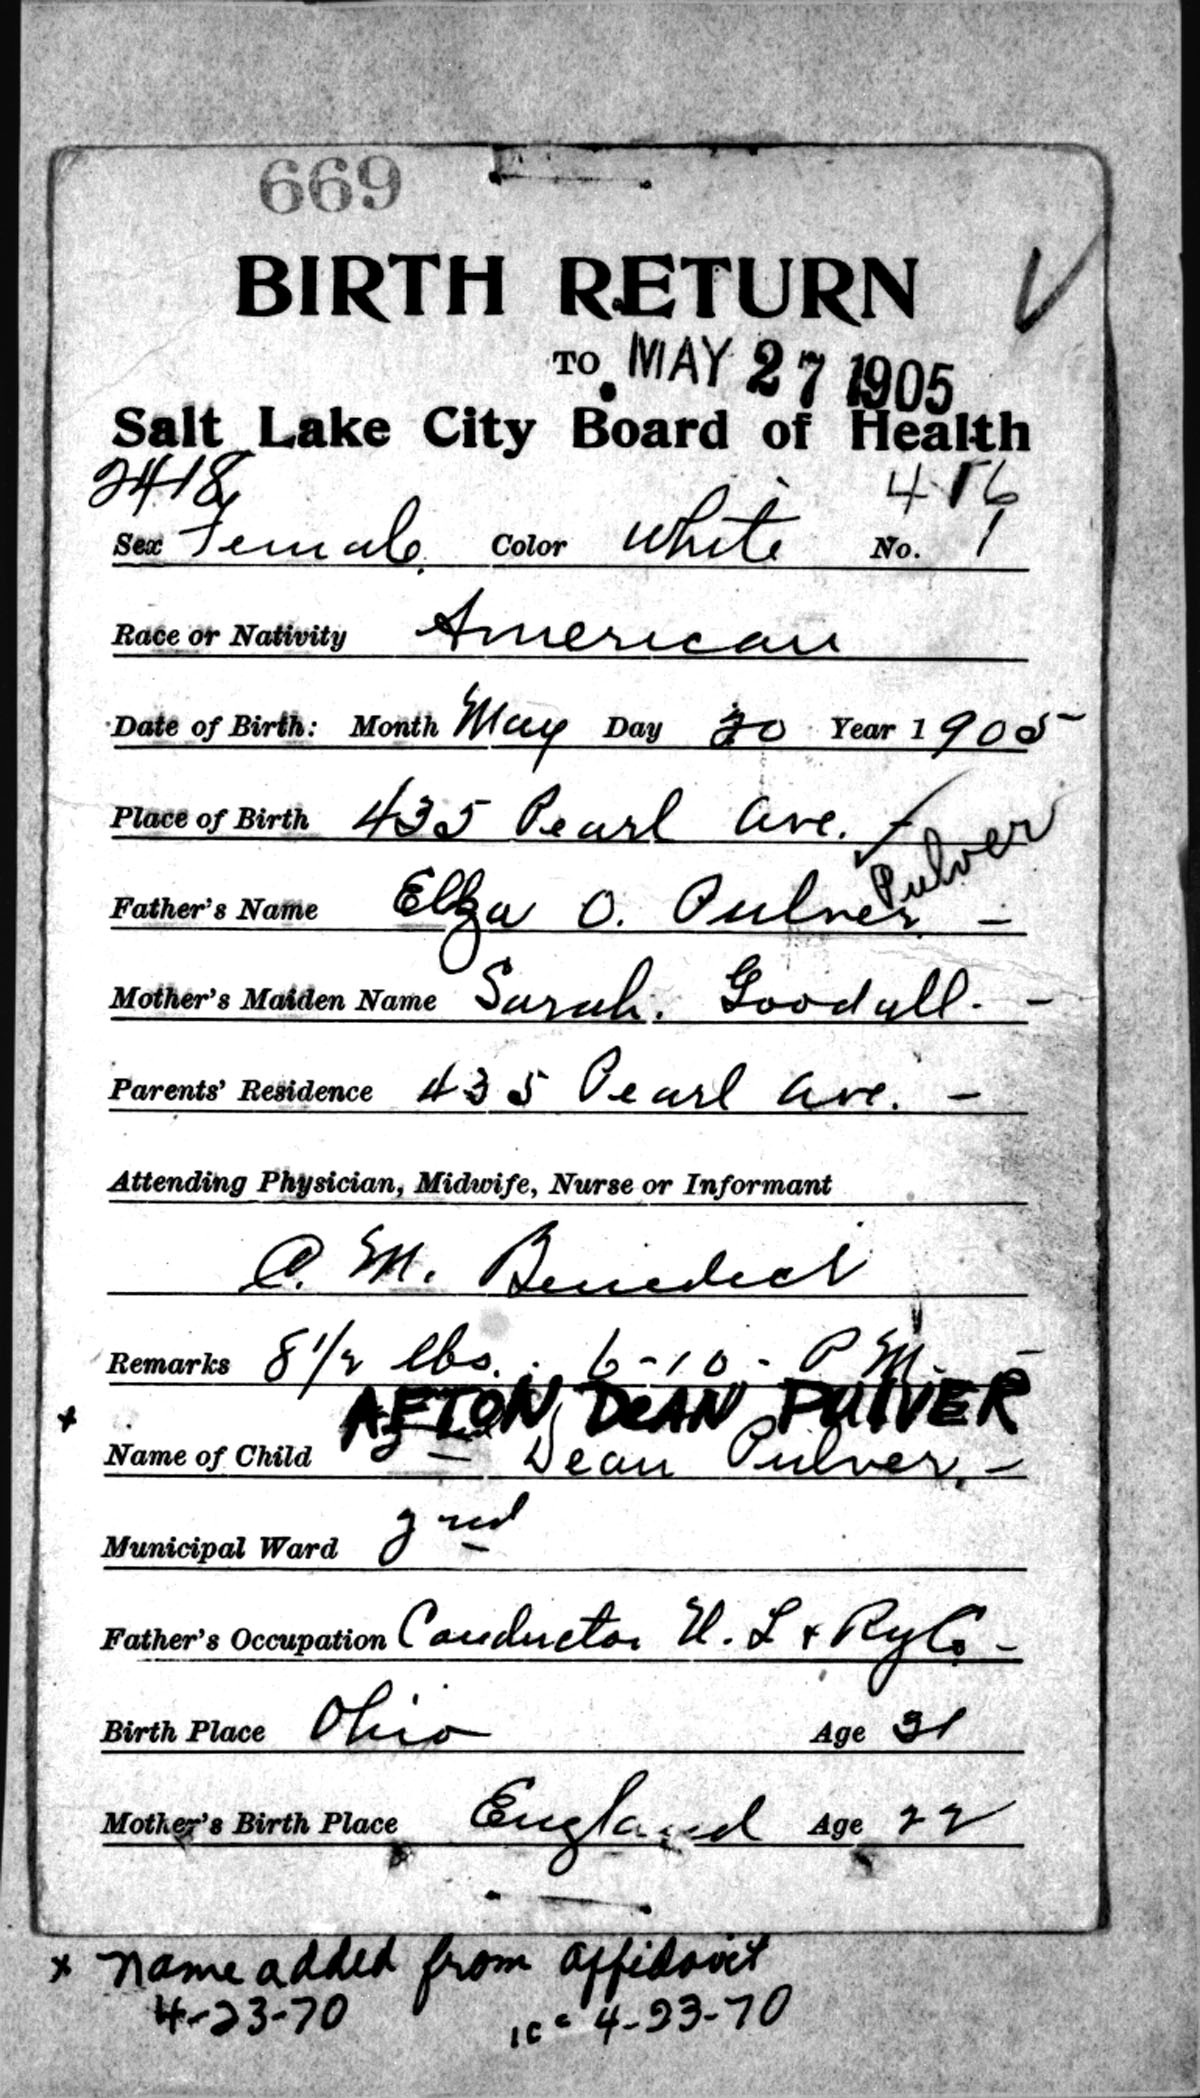 669
BIRTH RETURN
TO MAY 27 1905
Salt Lake City Board of Health
2418 416
Sex Female Color White No. 1
Race or Nativity American
Date of Birth: Month May Day 20 Year 1905
Place of Birth 435 Pearl Ave.
Pulver
Father's Name Elza O. Pulver
Mother's Maiden Name Sarah. Goodall.
Parents' Residence 435 Pearl Ave.
Attending Physician, Midwife, Nurse or Informant
C. M. Benedict
Remarks 8 1/2 lbs. 6-10- P M.
AFTON DEAN PULVER
x Name of Child Dean Pulver.
Municipal Ward 2nd
Father's Occupation Conductor U. L & Ry Co
Birth Place Ohio Age 31
Mother's Birth Place England Age 22
x Name added from affidavit
4-23-70 4-23-70